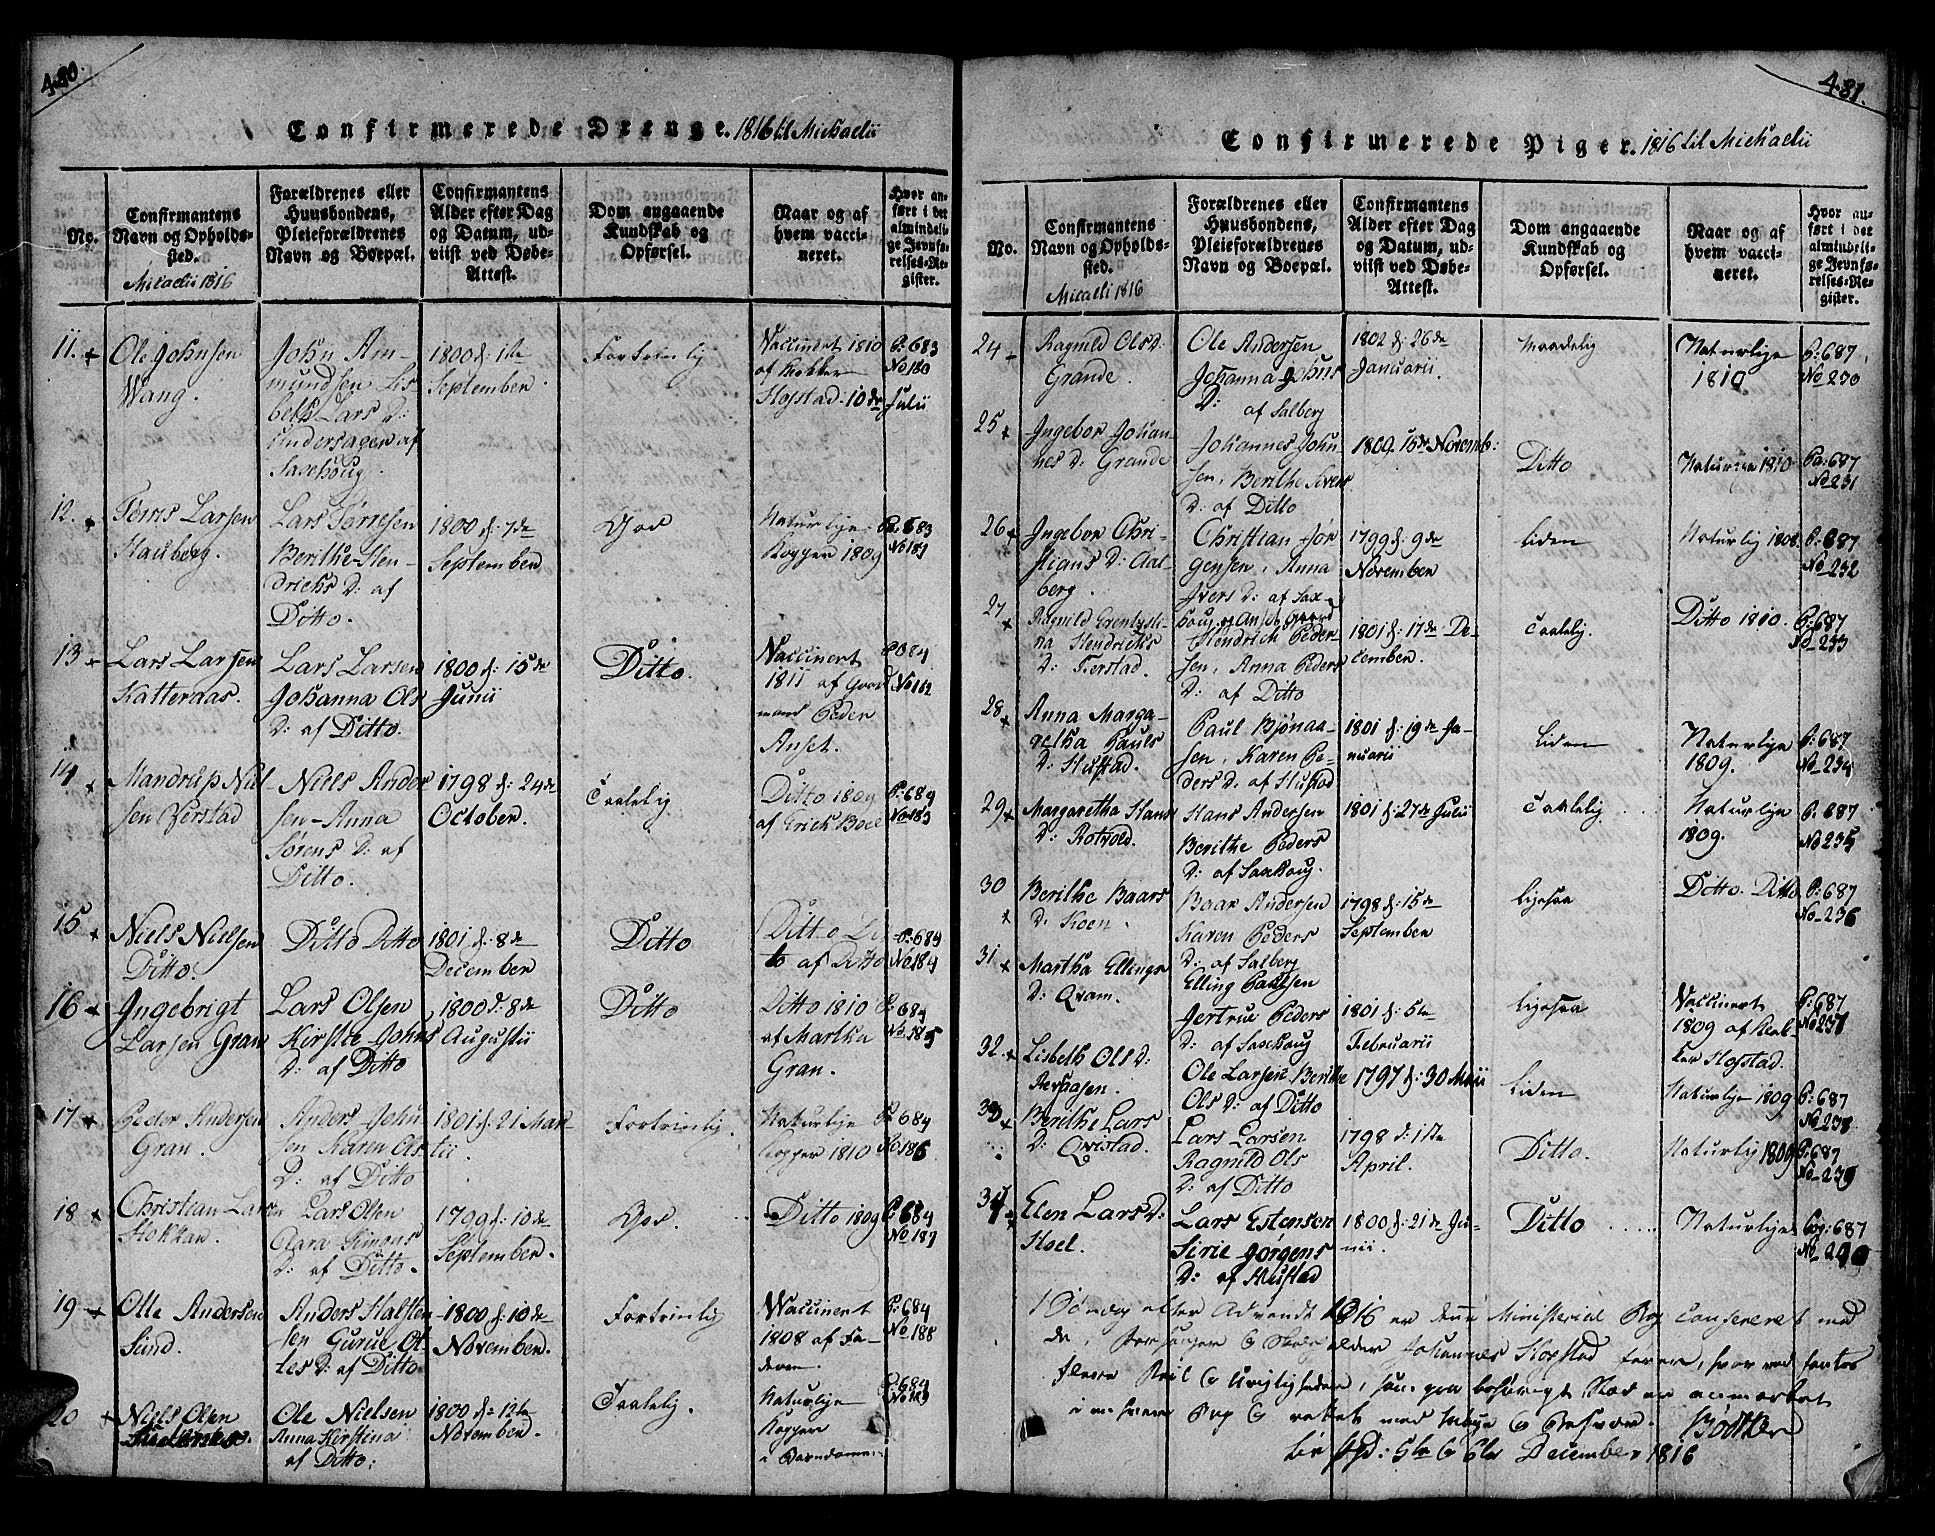 480.
Confirmerede Drenge. 1816 til Michaelii
No.
Confirmantens Navn og Opholdssted.
Micaelii 1816
Forældrenes eller Huusbondens, Pleieforældrenes Navn og Boepæl.
Confirmantens Alder efter Dag og Datum, udviist ved Døbe-Attest.
Dom angaaende Kundskab og Opførsel.
Naar og af hvem vaccineret.
Hvor anført i det almindelige Jevnførelses-Register.
11. Ole Johnsen
Wang.
John Am-
mundsen Lis
beth Lars D:
af
Saxehoug.
1800 d: 1te
September
Fortrinlig
Vaccinert 1810
af Klokker
Hofstad 10de Julii
P: 683
No 180
12. Tørris Larsen
Hauberg.
Lars Tørrisen
Berithe Hen-
dricks D: af
Ditto.
1800 d: 7de
September
God
Naturlige
Kopper 1809
Pa: 683
No 181
13 Lars Larsen
Katteraas.
Lars Larsen
Johanna Ols
D: af Ditto.
1800 d: 15de
Junii
Ditto.
Vaccinert
1811 af Gaard
mand Peder
Anset.
P 684
No 182
14 Mandrup Niel-
sen Verstad
Niels Ander
sen - Anna
Sørens D: af
Ditto.
1798 d: 24de
October.
Taalelig
Ditto 1809
af Erick Boel
P: 684
No 183
15 Niels Nielsen
Ditto.
Ditto Ditto
1801 d: 8de
December
Ditto
Ditto Dit-
to af Ditto
P: 684
No 184
16 Ingebrigt
Larsen Gran
Lars Olsen
Kirstie Johns
D: af Ditto
1800 d: 8de
Augustii
Ditto
Ditto 1810
af Martha
Gran.
P: 684
No 185
17 Peder Andersen
Gran.
Anders John
sen Karen Ols
D: af Ditto
1801 d: 21 Mar-
tii.
Fortrinlig.
Naturlige
Kopper 1810
P: 684
No 186
18 Christian Larsen
Hokkan.
Lars Olsen
Clara Simons
D: af Ditto.
1799 d: 10de
September.
God.
Ditto 1809
P: 684
No 187
19 Olle Andersen
Sund.
Anders Halsten
sen Gurue Ol-
les D: af Ditto
1800 d: 10de
November.
Fortrinlig
Vaccinert
1808 af Fa-
deren.
P: 684
No 188
20 Niels Olsen
Ole Nielsen
Anna Kirstina
af Ditto:
1800 d: 12te
November.
Taalelig.
Naturlige
Kopper
i Barndommen
P: 684
No 189
481.
Confirmerede Piger. 1816 til Michaelii
No.
Confirmantens Navn og Opholdssted.
Micaeli 1816
Forældrenes eller Huusbondens, Pleieforældrenes Navn og Boepæl.
Confirmantens Alder efter Dag og Datum, udviist ved Døbe-Attest.
Dom angaaende Kundskab og Opførsel.
Naar og af hvem vaccineret.
Hvor anført i det almindelige Jevnførelses-Register.
24 Ragnild Ols D:
Grande.
Ole Andersen
Johanna Jens
D: af Salberg
1802 d: 26de
Januarii.
Maadelig
Naturlige
1810
P: 687
No 230
25 Ingebor Johan-
nes D: Grande
Johannes John
sen, Berithe Sivers
D: af Ditto
1800. 15de Novemb:
Ditto
1810
Pa: 687
No 231
26 Ingebor Chri-
stians D: Aal-
berg.
Christian Jør
gensen, Anna
Ivers D: af Sax-
houg
1799 d: 9de
November
Liden
Naturlig 1808.
P: 687
No 232
27 Ragnild
na Hendricks
D: Tierstad.
Hendrich Peder
sen, Anna Peders
D: af Ditto
1801 d: 17de De-
cember.
Taalelig.
Ditto 1810.
P: 687
No 233
28 Anna Marga-
retha Pauls
D: Hustad.
Paul Bjønaa-
sen, Karen Pe-
ders D: af Hustad
1801 d: 19de Ja-
nuarii
Liden
Naturlige
1809.
P: 687
No 234
29 Margaretha Hans
D: Rotvold.
Hans Andersen
Berithe Peders
D: af Saxehoug.
1801 d: 27de Julii
Taalelig.
Naturlige
1809.
P: 687
No 235
30 Berithe Baars
D: Koen.
Baar Andersen
Karen Peders
D: af Salberg
1798 d: 15de
September
Ligesaa
Ditto Ditto
P: 687
No 236
31 Martha Ellings
D: Qvam.
Elling Paulsen
Jertrue Peders
D: af Saxehoug
1801 d: 5te
Februarii
Ligesaa
Vaccinert
1809 af Klok-
ker Hofstad.
P: 687
No 237
32. Lisbeth Ols D:
Ole Larsen Berithe
Ols D: af Ditto
1797 d: 30 Maii
Liden
Naturlige 1809
P: 687
No 238
33 Berithe Lars
D: Qvistad.
Lars Larsen
Ragnild Ols
D: af Ditto
1798 d: 1ste
April.
Ditto.
Naturlig 1809
P: 687
No 239
34 Elen Lars D:
Hoel.
Lars Estensen
Sirie Jørgens
D: af Hustad
1800 d: 21de Ju-
nii.
Ditto
Naturlige
Pag: 687
No 240
1 Søndag efter Advendt 1816 er denne Ministerial Bog Confereret med
Johannes Hofstad fører, hvor ved fantes
flere Feil & Urigtigheder, som paa behørigt Sted er anmærket
i en hver Bog & rettet med
Bødtker
d: 5te & 6te December 1816